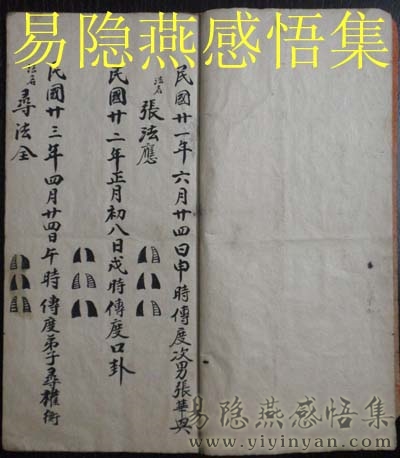 易隐燕感悟集
民國廿一年六月廿四日申時傳度次男張華與
法名 張法應
民國廿二年正月初八日戍時傳度口卦
民國廿三年四月廿四日午時傳度弟子尋權衡
法名 尋法全
易隐燕感悟集
www.yiyinyan.com